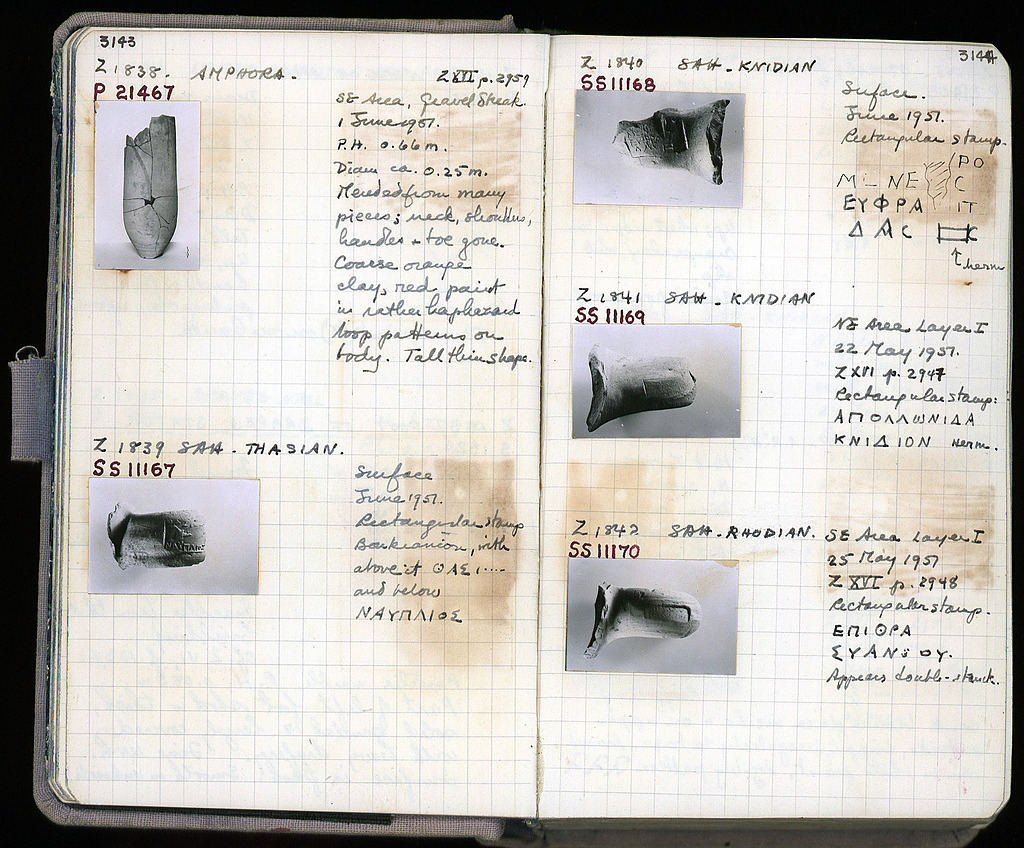 3143
Z 1838. AMPHORA.
P 21467
Z XVI p. 2959
SE Area, Gravel Streak
1 June 1951.
P.H. 0.66 m.
Diam ca. 0.25 m.
Mended from many
pieces; neck, shoulders,
handles + toe gone.
Coarse orange
clay, red paint
in rather haphazard
loop patterns on
body. Tall thin shape.
Z 1839 SAH - THASIAN.
SS 11167
Surface
June 1951.
Rectangular stamp
with
above it ΘΑΣΙ.....
and below
ΝΑΥΠΛΙΟΣ
3144
Z 1840 SAH - KNIDIAN
SS 11168
Surface.
June 1951.
Rectangular stamp.
ΡΟ
Μ_ΝΕ C
ΕΥΦΡΑ ΙΤ
Δ Α C
herm
Z 1841 SAH - KNIDIAN
SS 11169
NE Area Layer I
22 May 1951.
Z XVI p. 2947
Rectangular stamp:
ΑΠΟΛΛΩΝΙΔΑ
ΚΝΙΔΙΟΝ herm.
Z 1842 SAH - RHODIAN.
SS 11170
SE Area Layer I
25 May 1951
Z XVI p. 2948
Rectangular stamp.
ΕΠΙΘΡΑ
ΣΥΑΝΔΟΥ.
Appears double-struck.